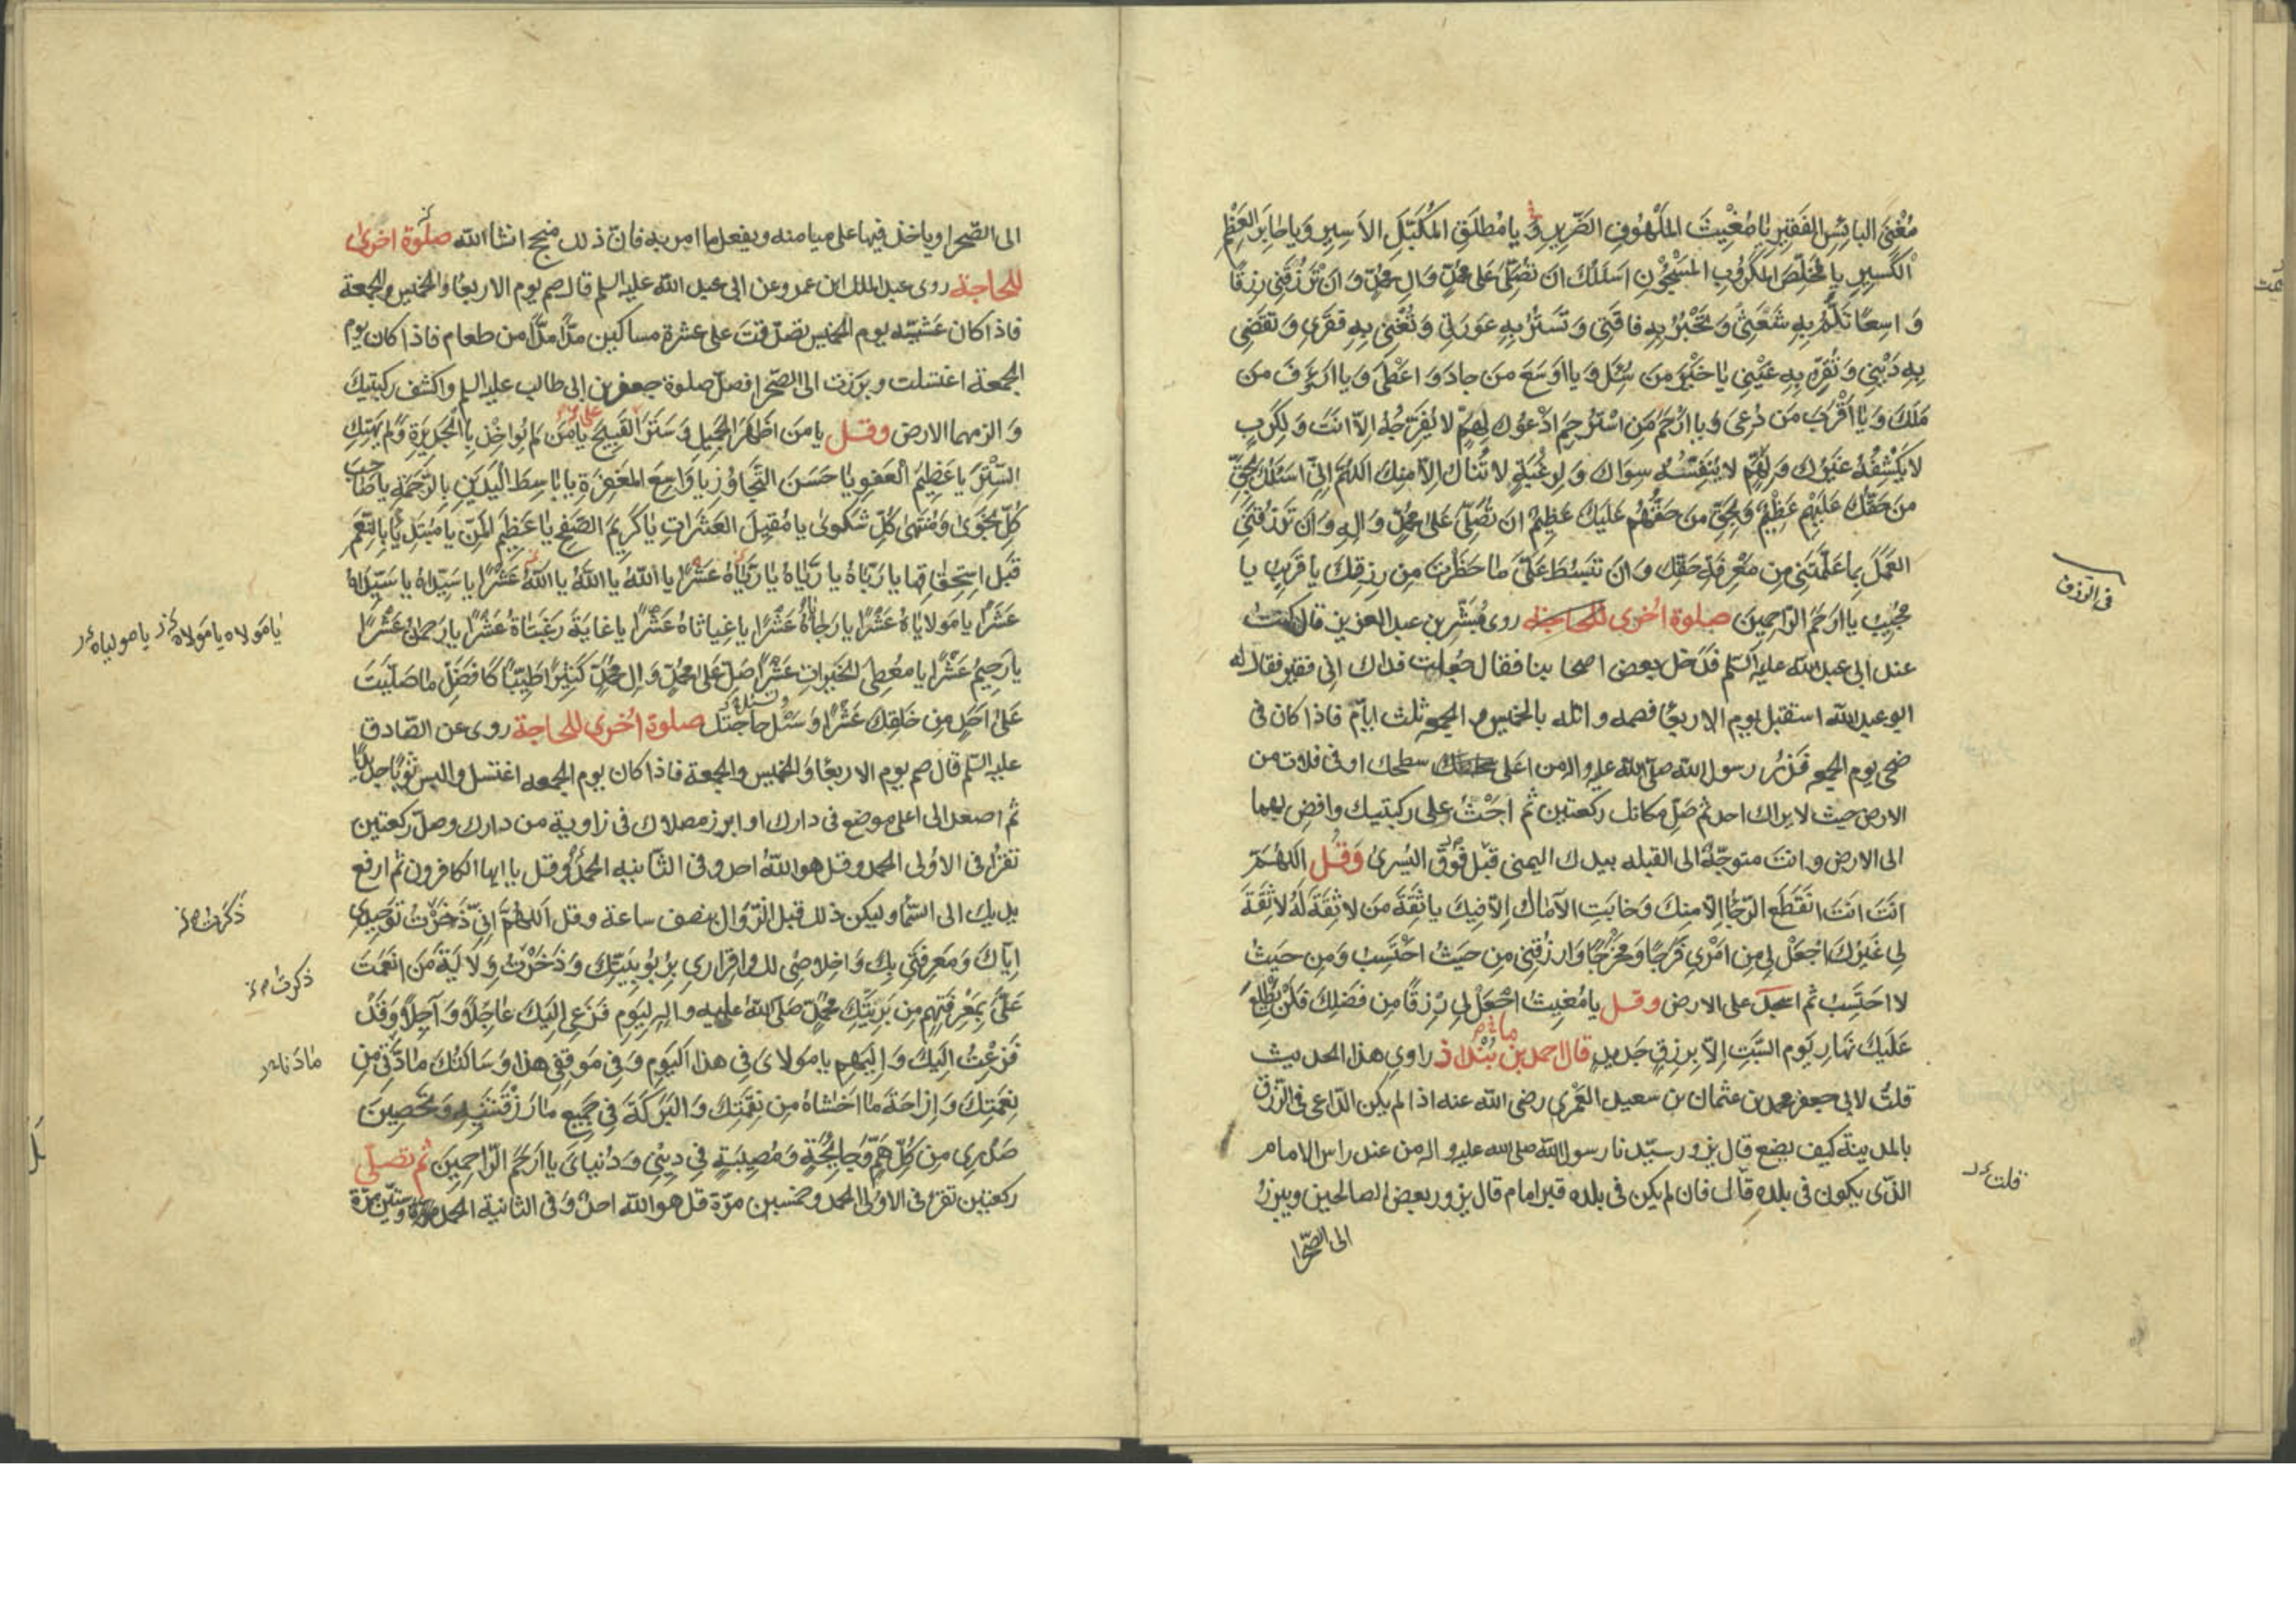 مُغْنِيَ البائِسِ الفَقيرِ يا مُغيثَ المَلْهُوفِ الضَّريرِ وَ يا مُطلِقَ المُكَبَّلِ الاَسيرِ وَ يا جابِرَ العَظْمِ
الكَسيرِ يا مُخَلِّصَ المَكْرُوبِ المَسْجُونِ اَسئَلُكَ اَن تُصَلِّىَ عَلى مُحَمَّدٍ وَ الِ مُحَمَّدٍ وَ اَن تَرْزُقَنى رِزقًا
وَاسِعًا تَلُمُّ بِهِ شَعَثى وَ تَجْبُرُ بِهِ فاقَتى وَ تَستُرُ بِهِ عَورَتى وَ تُغْنى بِهِ فَقرى وَ تَقضى
بِهِ دَيْنى وَ تُقِرُّ بِهِ عَيْنى يا خَيْرَ مَن سُئِلَ وَ يا اَوسَعَ مَن جادَ وَ اَعْطى وَ يا اَرءَفَ مَن
مَلَكَ وَ يا اَقْرَبَ مَن دُعِىَ وَ يا اَرْحَمَ مَنِ اسْتُرْحِمَ اَدْعُوكَ لِهَمٍّ لا يُفَرِّجُهُ اِلاّ اَنتَ وَ لِكَربٍ
لا يَكْشِفُهُ غَيْرُكَ وَ لِهَمٍّ لا يُنَفِّسُهُ سِواكَ وَ لِرَغْبَةٍ لا تُنالُ اِلاّ مِنكَ اللهُمَّ اِنّى اَسئَلُكَ بِحَقِّ
مَن حَقُّكَ عَلَيْهِم عَظيمٌ وَ بِحَقِّ مَن حَقُّهُم عَلَيكَ عَظيمٌ اَن تُصَلِّىَ عَلى مُحَمَّدٍ وَ الِهِ وَ اَن تَرزُقَنى
العَمَلَ بِما عَلَّمتَنى مِن مَعْرِفَةِ حَقِّكَ وَ اَن تَبسُطَ عَلَىَّ ما حَظَرتَ مِن رِزقِكَ يا قَريبُ يا
مُجيبُ يا اَرحَمَ الرّاحِمينَ صلوة اخرى للحاجة روى مُبَشّر بن عبد العزيز قال كنتُ
فى الرزق
عند ابى عبد الله عليه السلم فدخل بعض اصحابنا فقال جُعلت فداك انى فقير فقال له
ابو عبد الله استقبل يوم الاربعا فصمه و اتله بالخميس و الجمعه ثلث ايام فاذا كان فى
ضحى يوم الجمعه فَزُر رسول الله صلى الله عليه واله من اعلى سطحك او فى فلات من
الارض حيث لا يراك احد ثم صَلِّ مكانك ركعتين ثم اجْثُ على ركبتيك وافضِ بهما
الى الارض و انتَ متوجّهٌ الى القبله بيدك اليمنى فَوقَ اليُسرى وَقُل اَللهُمَّ
اَنتَ اَنتَ انقَطَعَ الرَّجاءُ اِلاّ مِنكَ وَ خابَتِ الآمالُ اِلاّ فيكَ يا ثِقَةَ مَن لا ثِقَةَ لَهُ لا ثِقَةَ
لى غَيرُكَ اجْعَل لى مِن اَمْرى فَرَجًا وَ مَخرَجًا وَ ارزُقنى مِن حَيثُ احْتَسِبُ وَ مِن حَيثُ
لا احتَسِبُ ثم اسجد على الارض وقل يا مُغيثُ اجْعَل لى رِزقًا مِن فَضلِكَ فَلَن يَطْلُعَ
عَلَيكَ نَهارُ يَومِ السَّبتِ اِلاّ بِرِزقٍ جَديدٍ قال احمد بن مابنداذ راوى هذا الحديث
قلتُ لابى جعفر محمد بن عثمان بن سعيد العَمْرى رضى الله عنه اذا لم يكن الدّاعى فى الرّزق
بالمدينة كيف يصنع قال يزور سيّدنا رسول الله صلى الله عليه واله من عند راس الامام
الذى يكون فى بلده قال فان لم يكن فى بلده قبر امام قال يزور بعض الصالحين و يبرز
قلت
الى الصّحرا
الى الصّحرا و ياخذ فيها على ميامنه و يفعل ما امر به فانّ ذلك منجح انشا الله صلوة اخرى
للحاجة روى عبد الملك ابن عمرو عن ابى عبد الله عليه السلم قال صم يوم الاربعا و الخميس و الجمعة
فاذا كان عَشيّة يوم الخميس تصدّقتَ على عشرة مساكين مدًّا مدًّا من طعام فاذا كان يوم
الجمعة اغتسلت و بَرَزت الى الصّحرا فصلّ صلوة جعفر بن ابى طالب عليه السلم و اكشف ركبتيك
وَ الزمهما الارض وقل يا مَن اَظهَرَ الجَميلَ وَ سَتَرَ القَبيحَ يا مَن لم يُواخِذ بِالجَريرَةِ وَ لم يَهتِكِ
السِّترَ يا عَظيمَ العَفوِ يا حَسَنَ التَّجاوُزِ يا وَاسِعَ المَغفِرَةِ يا باسِطَ اليَدَينِ بِالرَّحمَةِ يا صاحِبَ
كُلِّ نَجوى وَ مُنتَهى كُلِّ شَكوى يا مُقيلَ العَثَراتِ يا كَريمَ الصَّفحِ يا عَظيمَ المَنِّ يا مُبتَدِئًا بِالنِّعَمِ
قَبلَ استِحقاقِها يا رَبّاهُ يا رَبّاهُ يا رَبّاهُ عَشْرًا يا اَللّهُ يا اَللّهُ يا اَللّهُ عَشْرًا يا سَيِّداهُ يا سَيِّداهُ
عَشْرًا يا مَولاياهُ عَشْرًا يا رَجاءاهُ عَشْرًا يا غِياثاهُ عَشْرًا يا غايَةَ رَغبَتاهُ عَشْرًا يا رَحمنُ عَشْرًا
يا مَولاه يا مَولاه يا مولياه
يا رَحيمُ عَشْرًا يا مُعطِىَ الخَيراتِ عَشْرًا صَلِّ عَلى مُحَمَّدٍ وَ الِ مُحَمَّدٍ كَثيرًا طَيِّبًا كَاَفضَلِ ما صَلَّيتَ
عَلى اَحَدٍ مِن خَلقِكَ عَشْرًا وَ سَئل حاجَتَك صلوة اخرى للحاجة روى عن الصّادق
عليه السّلم قال صم يوم الاربعا و الخميس و الجمعة فاذا كان يوم الجمعه اغتسل و البس ثوبًا جديدًا
ثم اصعد الى اعلى موضع فى دارك او ابرز مصلاك فى زاوية من دارك و صلّ ركعتين
تقرأ فى الاولى الحمد و قل هو اللهُ احد و فى الثانيه الحمد و قل يا ايها الكافرون ثم ارفع
يديك الى السّما و ليكن ذلك قبل الزّوال بنصف ساعة و قل اَللهُمَّ اِنّى ذَخَرْتُ تَوحيدى
ذكرت
اِيّاكَ وَ مَعرِفَتى بِكَ وَ اِخلاصى لَكَ وَ اِقرارى بِرُبُوبِيَّتِكَ وَ ذَخَرْتُ وِلايَةَ مَن انعَمتَ
ذكرت
عَلَىَّ بِمَعرِفَتِهِم مِن بَرِيَّتِكَ مُحَمَّدٍ صَلَّى اللهُ عَلَيهِ و الِهِ لِيَومِ فَزَعى اِلَيكَ عاجِلاً وَ آجِلاً وَ قَدْ
فَزِعْتُ اِلَيكَ وَ اِلَيهِم يا مَولاىَ فى هذا اليَومِ وَ فى مَوقِفى هذا وَ سَالتُكَ مادَّتى مِن
نِعمَتِكَ وَ اِزاحَةَ ما اَخشاهُ مِن نِقمَتِكَ وَ البَرَكَةَ فى جَميعِ ما رَزَقتَنيهِ وَ تَحصينَ
صَدرى مِن كُلِّ هَمٍّ وَ جايِحَةٍ وَ مُصيبَةٍ فى دينى وَ دُنياىَ يا اَرحَمَ الرّاحِمينَ ثم تصلّى
ركعتين تقرأ فى الاولى الحمد و خمسين مرّة قل هو الله احد و فى الثانية الحمد و ستّين مرّة